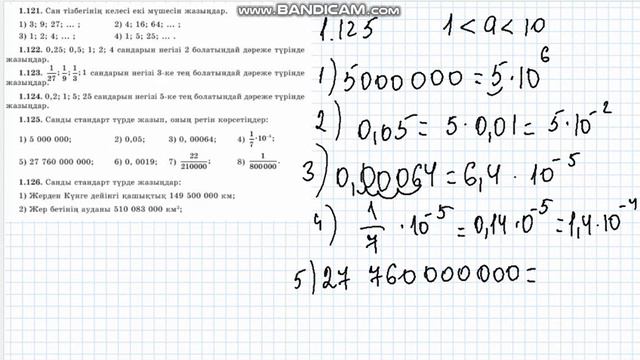 www.BANDICAM.com
1.121. Сан тізбегінің келесі екі мүшесін жазыңдар.
1) 3; 9; 27; ... ; 2) 4; 16; 64; ... ;
3) 1; 2; 4; ... ; 4) 1; 5; 25; ... .
1.122. 0,25; 0,5; 1; 2; 4 сандарын негізі 2 болатындай дәреже түрінде
жазыңдар.
1.123. 1/27; 1/9; 1/3; 1 сандарын негізі 3-ке тең болатындай дәреже түрінде
жазыңдар.
1.124. 0,2; 1; 5; 25 сандарын негізі 5-ке тең болатындай дәреже түрінде
жазыңдар.
1.125. Санды стандарт түрде жазып, оның ретін көрсетіңдер:
1) 5 000 000; 2) 0,05; 3) 0, 00064; 4) 1/7 · 10⁻⁵;
5) 27 760 000 000; 6) 0, 0019; 7) 22/210000; 8) 1/800000.
1.126. Санды стандарт түрде жазыңдар:
1) Жерден Күнге дейінгі қашықтық 149 500 000 км;
2) Жер бетінің ауданы 510 083 000 км²;
1.125 1 < a < 10
1) 5000 000 = 5 · 10⁶
2) 0,05 = 5 · 0,01 = 5 · 10⁻²
3) 0,00064 = 6,4 · 10⁻⁵
4) 1/7 · 10⁻⁵ = 0,14 · 0⁻⁵ = 1,4 · 10⁻⁴
5) 27 760 000 000 =